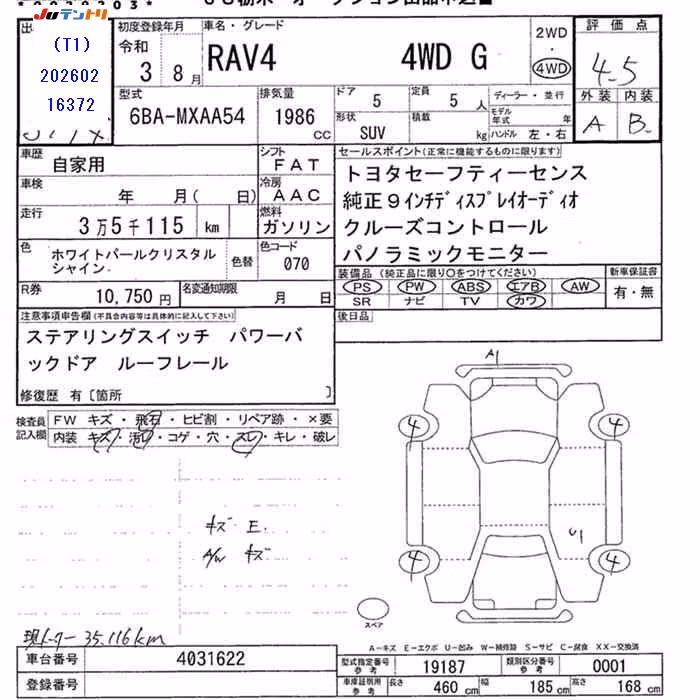 JUテントリ
(T1)
202602
16372
初度登録年月
令和
3 8月
車名・グレード
RAV4 4WD G
2WD
・
4WD
評価点
4.5
外装 内装
A B-
型式
6BA-MXAA54
排気量
1986
cc
ドア
5
定員
5 人
形状
SUV
積載
kg
ディーラー・並行
モデル年式 年
ハンドル 左・右
車歴
自家用
シフト
FAT
車検
年 月( 日)
冷房
AAC
走行
3万5千115 km
燃料
ガソリン
色
ホワイトパールクリスタル
シャイン
色替
色コード
070
R券
10,750円
名変通知期限
月 日
セールスポイント(正常に機能するものに限ります)
トヨタセーフティーセンス
純正9インチディスプレイオーディオ
クルーズコントロール
パノラミックモニター
装備品(純正品に限り〇をつけてください)
PS PW ABS エアB AW
SR ナビ TV カワ
新車保証書
有・無
後日品
注意事項申告欄(不具合内容等は具体的に記入して下さい)
ステアリングスイッチ パワーバ
ックドア ルーフレール
修復歴 有〔箇所 〕
検査員
記入欄
FW キズ・飛石・ヒビ割・リペア跡・×要
内装 キズ・汚れ・コゲ・穴・スレ・キレ・破レ
キズ E.
A/W キズ
現メーター 35.116km
A1
4
4
U1
4
4
スペア
A-キズ E-エクボ U-凹み W-補修跡 S-サビ C-腐食 XX-交換済
車台番号
4031622
登録番号
型式指定番号
参考
19187
類別区分番号
参考
0001
車庫証明用
参考
長さ 460 cm 幅 185 cm 高さ 168 cm